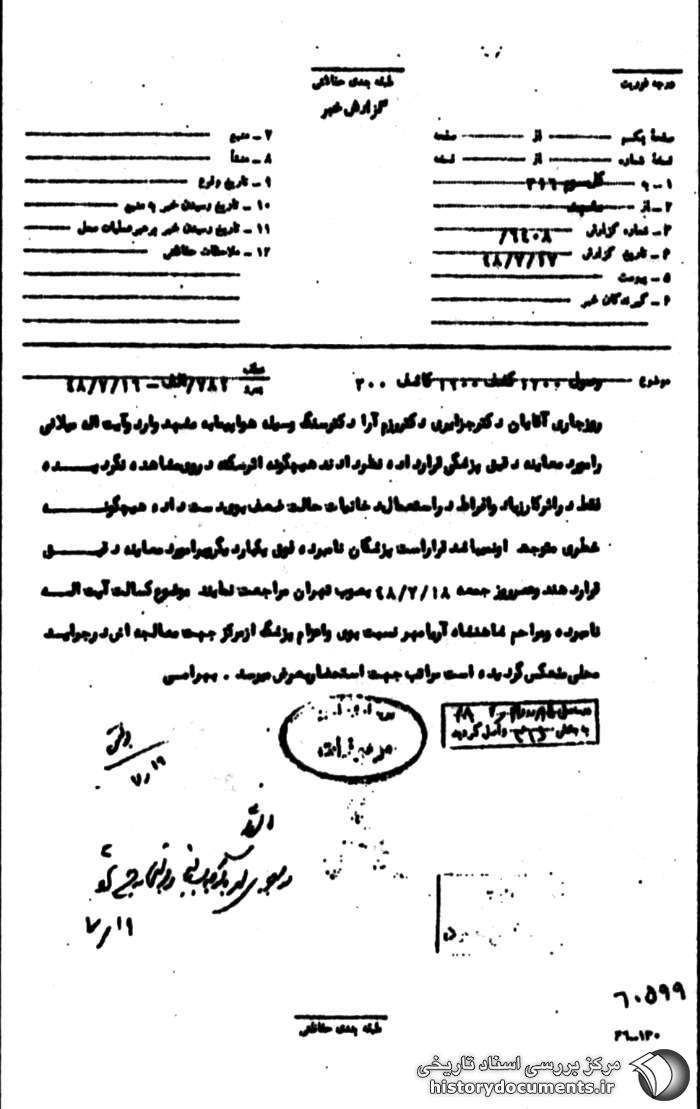 درجه فوریت
طبقه بندی حفاظتی
گزارش خبر
صفحهٔ یکم از صفحه
نسخهٔ شماره از نسخه
۱ - به کل سوم ۳۱۶
۲ - از مشهد
۳ - شماره گزارش ۶۴۰۸/
۴ - تاریخ گزارش ۴۸/۷/۱۷
۵ - پیوست
۶ - گیرندگان خبر
۷ - منبع
۸ - منشأ
۹ - تاریخ وقوع
۱۰ - تاریخ رسیدن خبر به منبع
۱۱ - تاریخ رسیدن خبر به رهبر عملیات محل
۱۲ - ملاحظات حفاظتی
موضوع وصول ۱۲۰۰ کشف ۱۲۰۰ کاشف ۳۰۰ - ۴۸/۷/۱۹
روزجاری آقایان دکترجزایری دکتررزم آرا دکترسنگ وسیله هواپیمابه مشهد واردوآیت اله میلانی
رامورد معاینه دقیق پزشکی قرارداده نظردادند هیچگونه اثرسکته درویمشاهده نگردیده
فقط دراثرکارزیاد وافراط دراستعمال دخانیات حالت ضعف بویدست داده هیچگونه
خطری متوجه اونمیباشد قراراست پزشکان نامبرده فوق یکباردیگرویرامورد معاینه دقیق
قراردهند وعصرروز جمعه ۴۸/۷/۱۸ بصوب تهران مراجعت نمایند موضوع کسالت آیت اله
نامبرده ومراحم شاهنشاه آریامهر نسبت بوی واعزام پزشک ازمرکز جهت معالجه اش درجراید
محلی منعکس گردیده است مراتب جهت استحضاربعرض میرسد . بهرامی
به بخش ۳۱۶ واصل گردید
۷/۱۹
۷/۱۹
۶۰۵۹۹
طبقه بندی حفاظتی
۲۶-۱۳۰
مرکز بررسی اسناد تاریخی
historydocuments.ir